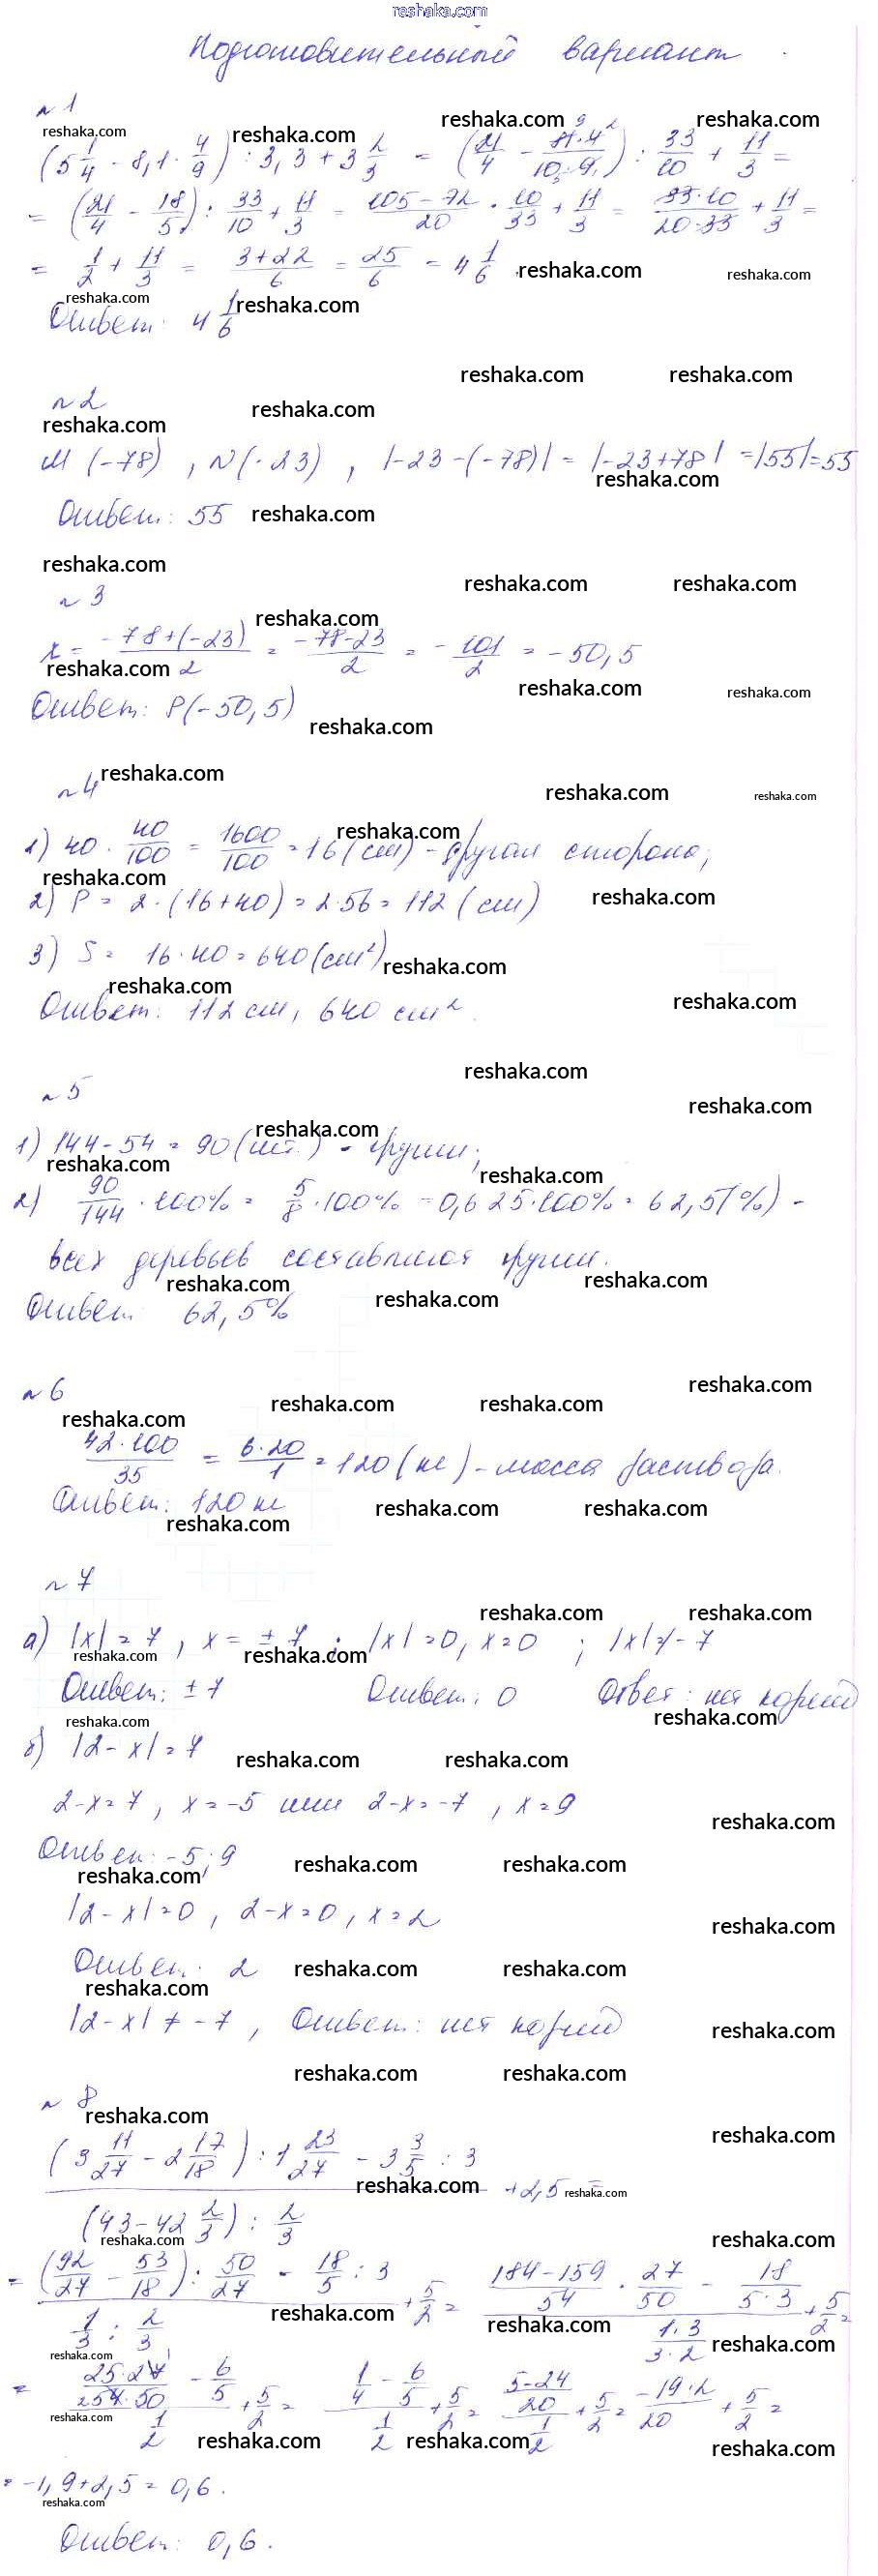 reshaka.com
Подготовительный вариант
№1
(5 1/4 - 8,1 · 4/9) : 3,3 + 3 2/3 = (21/4 - 81·4/10·9) : 33/10 + 11/3 =
= (21/4 - 18/5) : 33/10 + 11/3 = 105-72/20 · 10/33 + 11/3 = 33·10/20·33 + 11/3 =
= 1/2 + 11/3 = 3+22/6 = 25/6 = 4 1/6
Ответ: 4 1/6
№2
M (-78), N (-23), |-23-(-78)| = |-23+78| = |55| = 55
Ответ: 55
№3
x = -78+(-23)/2 = -78-23/2 = -101/2 = -50,5
Ответ: P(-50,5)
№4
1) 40 · 40/100 = 1600/100 = 16 (см) - другая сторона;
2) P = 2·(16+40) = 2·56 = 112 (см)
3) S = 16·40 = 640 (см²)
Ответ: 112 см, 640 см²
№5
1) 144-54 = 90 (шт.) - груши;
2) 90/144 · 100% = 5/8 · 100% = 0,625·100% = 62,5(%) -
всех деревьев составляют груши.
Ответ: 62,5%
№6
42·100/35 = 6·20/1 = 120 (кг) - масса раствора.
Ответ: 120 кг
№7
а) |x| = 7, x = ±7; |x| = 0, x = 0; |x| ≠ -7
Ответ: ±7 Ответ: 0 Ответ: нет корней
б) |2-x| = 7
2-x = 7, x = -5 или 2-x = -7, x = 9
Ответ: -5; 9
|2-x| = 0, 2-x = 0, x = 2
Ответ: 2
|2-x| ≠ -7, Ответ: нет корней
№8
(3 11/27 - 2 17/18) : 1 23/27 - 3 3/5 : 3
+ 2,5 =
(43-42 2/3) : 2/3
= (92/27 - 53/18) : 50/27 - 18/5 : 3 / 1/3 : 2/3 + 5/2 = 184-159/54 · 27/50 - 18/5·3 / 1·3/3·2 + 5/2 =
= 25·27/54·50 - 6/5 / 1/2 + 5/2 = 1/4 - 6/5 / 1/2 + 5/2 = 5-24/20 / 1/2 + 5/2 = -19·2/20 + 5/2 =
= -1,9+2,5 = 0,6.
Ответ: 0,6.